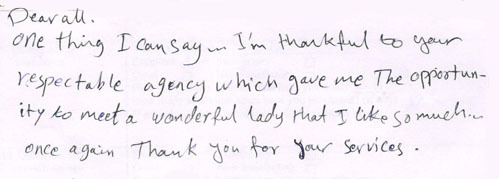 Dear all.
One thing I can say... I'm thankful to your
respectable agency which gave me The opportun-
ity to meet a wonderful lady that I like so much...
once again Thank you for your services.